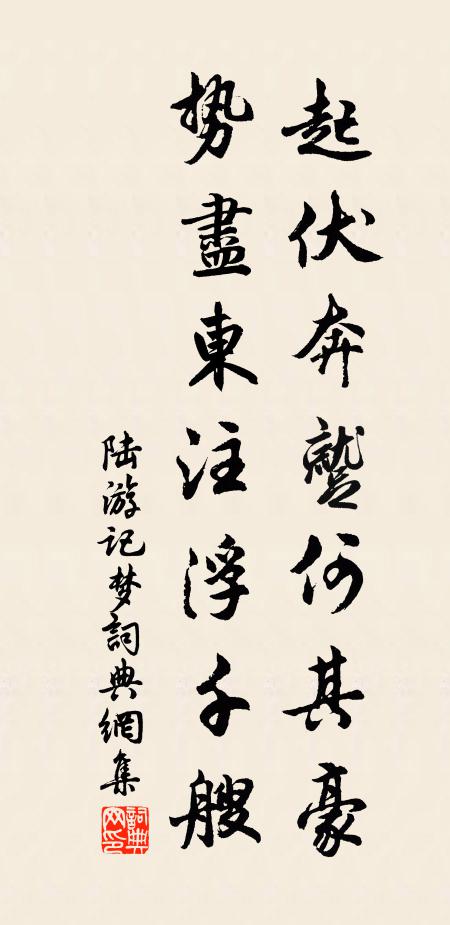 起伏奔蹙何其豪
势盡東注浮千艘
陆游记梦詞典網集
詞典网印